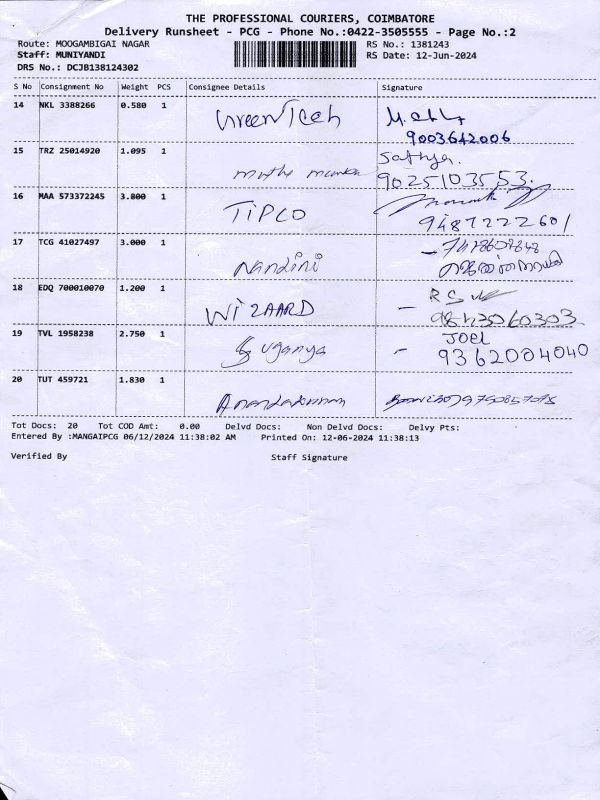 THE PROFESSIONAL COURIERS, COIMBATORE
Delivery Runsheet - PCG - Phone No.:0422-3505555 - Page No.:2
Route: MOOGAMBIGAI NAGAR RS No.: 1381243
Staff: MUNIYANDI RS Date: 12-Jun-2024
DRS No.: DCJB138124302
S No Consignment No Weight PCS Consignee Details Signature
14 NKL 3388266 0.580 1 GreenTech
9003642006
15 TRZ 25014920 1.095 1 Sathya.
9025103553.
16 MAA 573372245 3.800 1 TIPCO
9487222601
17 TCG 41027497 3.000 1 Nandini
18 EDQ 700010070 1.200 1 WIZAARD - RS
9843060303
19 TVL 1958238 2.750 1 Suganya - JOEL
9362004040
20 TUT 459721 1.830 1
Tot Docs: 20 Tot COD Amt: 0.00 Delvd Docs: Non Delvd Docs: Delvy Pts:
Entered By :MANGAIPCG 06/12/2024 11:38:02 AM Printed On: 12-06-2024 11:38:13
Verified By Staff Signature